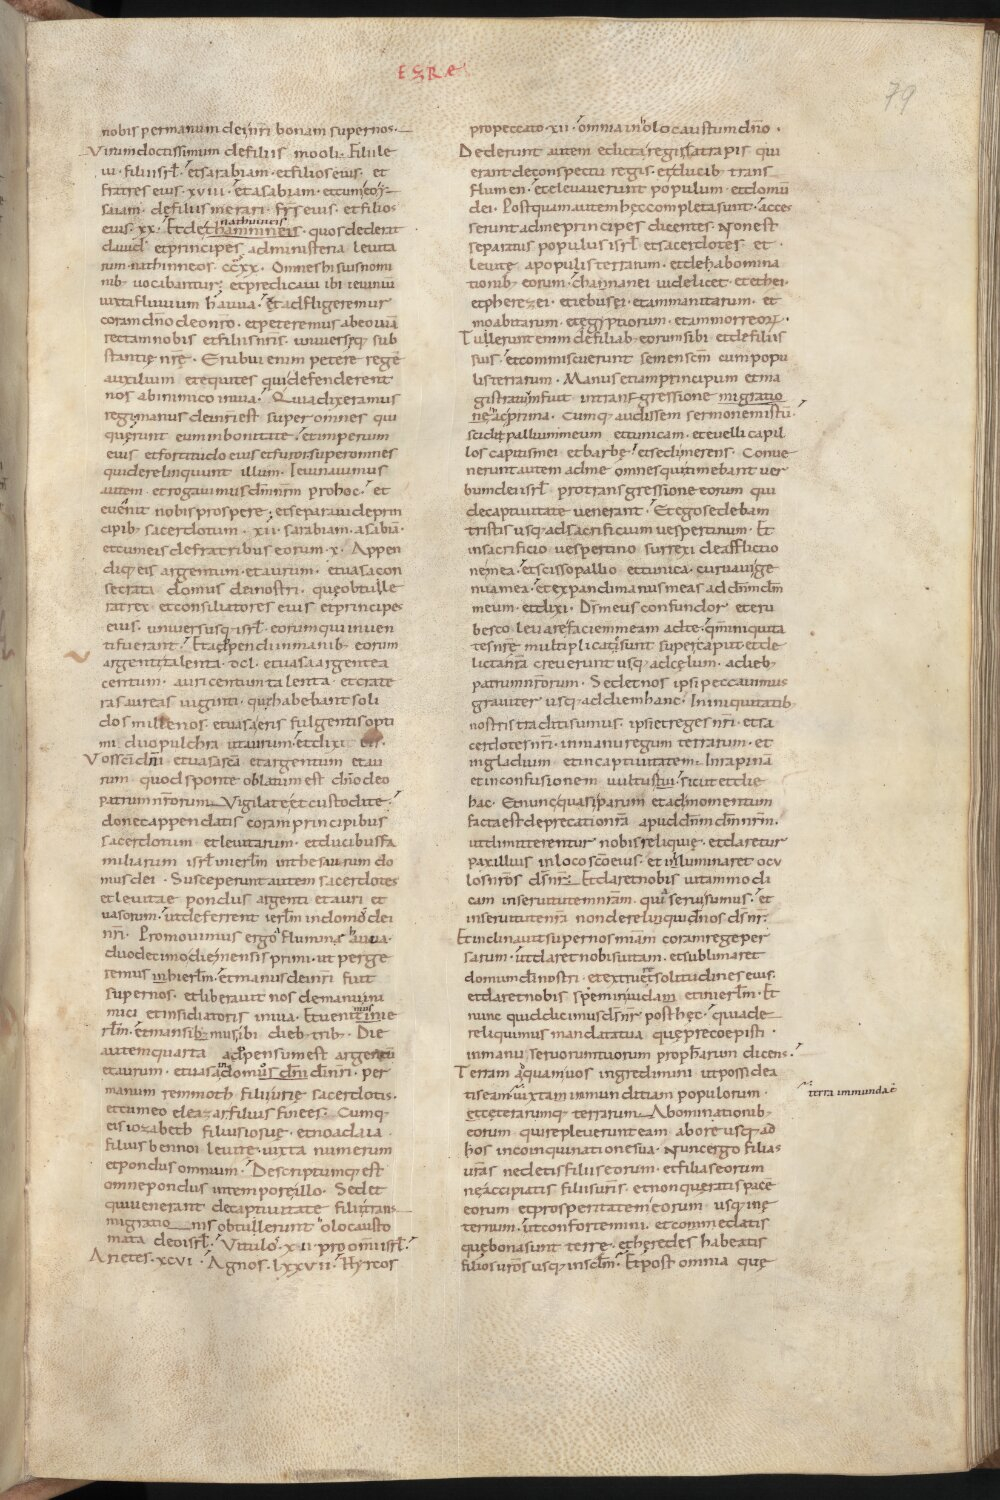 EZRĘ
79
nobis per manum dei nr̄i bonam super nos.
Virum doctissimum de filiis mooli. Filii le
ui. filii isrl. et sarabiam. et filios eius. et
fratres eius. xviii. et asabiam. et cum eo. i
saiam. de filiis merari. frs̄ eius. et filios
eius. xx. Et de thammineis. quos dederat
nathinneis
dauid et principes ad ministeria leuita
rum nathinneos. ccxx. Omnes hi suis nomi
nib; uocabantur; et predicaui ibi ieiuniū
iuxta fluuium hauua. et adfligeremur
coram dn̄o deo nr̄o. et peteremus ab eo uiā
rectam nobis et filiis nr̄is. uniuersęq; sub
stantię nr̄ę. Erubui enim petere regē
auxilium et equites qui defenderent
nos ab inimico in uia. Quia dixeramus
regi manus dei nr̄i est super omnes qui
quęrunt eum in bonitate. et imperium
eius et fortitudo eius et furor super omnes
qui derelinquunt illum. Ieiunauimus
autem. et rogauimus dm̄ nr̄m pro hoc. et
euenit nobis prospere; et separaui de prin
cipib; sacerdotum. xii. sarabiam. asabiā.
et cum eis de fratribus eorum. x. Appen
diq; eis argentum et aurum. et uasa con
secrata domus dei nostri. quę obtulle
rat rex et consiliatores eius et principes
eius. uniuersusq; isrl. eorum qui inuen
ti fuerant. Et appendi in manib; eorum
argenti talenta. dcl. et uasa argentea
centum. auri centum talenta. et crate
ras aureas uiginti. quę habebant soli
dos millenos. et uasa aeris fulgentis opti
mi duo pulchra ut aurum. et dixi eis.
Vos sc̄i dn̄i et uasa sc̄a et argentum et au
rum quod sponte oblatum est dn̄o deo
patrum nr̄orum. Vigilate et custodite.
donec appendatis coram principibus
sacerdotum et leuitarum. et ducibus fa
miliarum isrl in ierlm̄ in thesaurum do
mus dei. Susceperunt autem sacerdotes
et leuitae pondus argenti et auri et
uasorum. ut deferrent ierlm̄ in domū dei
nr̄i. Promouimus ergo a flumine hauua.
duodecimo die mensis primi. ut perge
remus in hierlm̄. et manus dei nr̄i fuit
super nos. et liberauit nos de manu ini
mici et insidiatoris in uia. Et uenimus in ie
rlm̄. et mansimus ibi dieb; trib;. Die
autem quarta adpensum est argentū
et aurum. et uasa in domo dn̄i dei nr̄i. per
manum remmoth filii urię sacerdotis.
et cum eo eleazar filius finees. Cumq;
eis iozabeth filius iosuę. et noadaia.
filius bennoi leuite. iuxta numerum
et pondus omnium. Descriptumq; est
omne pondus in tempore illo. Sed et
qui uenerant de captiuitate filii trans
migrationis obtullerunt olocausto
mata deo isrl. Vitulos xii. pro omni isrl.
Arietes. xcvi. Agnos. lxxvii. Hyrcos
pro peccato. xii. omnia in holocaustum dn̄o.
Dederunt autem edicta regis satrapis qui
erant de conspectu regis. et ducib; trans
flumen. et eleuauerunt populum et domū
dei. Postquam autem hęc completa sunt. acces
serunt ad me principes dicentes. Non est
separatus populus isrl et sacerdotes et
leuitę a populis terrarum. et de habomina
tionib; eorum. channanei uidelicet. et ethei.
et pherezei. et iebusei. et ammanitarum. et
moabitarum. et ęgyptiorum. et ammorreorum.
Tullerunt enim de filiab; eorum sibi et de filiis
suis. et commiscuerunt semen scm̄ cum popu
lis terrarum. Manus etiam principum et ma
gistratum fuit in transgressione migratio
ne ac prima. Cumq; audissem sermonem istū.
scidi pallium meum et tunicam. et euelli capil
los capitis mei et barbę. et sedi męrens. Conue
nerunt autem ad me omnes qui timebant uer
bum dei isrl. pro transgressione eorum qui
de captiuitate uenerant. Et ego sedebam
tristis usq; ad sacrificium uespertinum. Et
in sacrificio uespertino surrexi de afflictio
ne mea. et scisso pallio et tunica. curuaui ge
nua mea. et expandi manus meas ad dn̄m dm̄
meum. et dixi. Ds̄ meus confundor et eru
besco leuare faciem meam ad te. qm̄ iniquita
tes nr̄ę multiplicatę sunt super caput. et de
licta nr̄a creuerunt usq; ad cęlum. a dieb;
patrum nr̄orum. Sed et nos ipsi peccauimus
grauiter usq; ad diem hanc. In iniquitatib;
nostris traditi sumus. ipsi et reges nr̄i. et sa
cerdotes nr̄i. in manu regum terrarum. et
in gladium et in captiuitatem. In rapinā
et in confusionem uultus nr̄i. sicut et die
hac. Et nunc quasi parum et ad momentum
facta est deprecatio nr̄a apud dn̄m dm̄ nr̄m.
ut dimitterentur nobis reliquię. et daretur
paxillus in loco sc̄o eius. et inluminaret ocu
los nr̄os ds̄ nr̄. Et daret nobis uitam modi
cam in seruitute nr̄am. quia serui sumus. et
in seruitute nr̄a non dereliquid nos ds̄ nr̄.
Et inclinauit super nos miam̄ coram rege per
sarum. ut daret nobis uitam. et sublimaret
domum dī nostri. et extrueret solitudines eius.
et daret nobis spem in iudam et in ierlm̄. Et
nunc quid dicimus ds̄ nr̄ post hęc. quia de
reliquimus mandata tua quę precoepisti.
in manu seruorum tuorum prophetarum dicens.
Terram ad quam uos ingredimini ut possidea
tis eam iuxta inmunditiam populorum.
terra immunda ē
et ceterarumq; terrarum. Abominationib;
eorum qui repleuerunt eam ab ore usq; ad
hos in coinquinatione sua. Nunc ergo filias
uras ne detis filiis eorum. et filias eorum
ne accipiatis filiis uris. et non queratis pacē
eorum et prosperitatem eorum usq; in ę
ternum. ut confortemini. et commedatis
quę bona sunt terrę. et heredes habeatis
filios uros usq; in sclm̄. Et post omnia quę